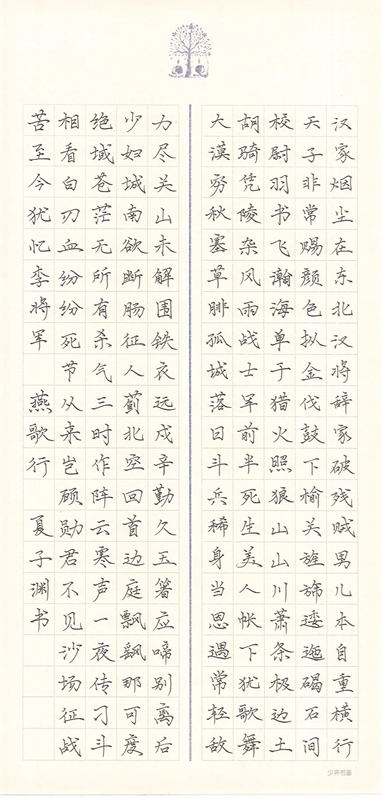 汉家烟尘在东北汉将辞家破残贼男儿本自重横行
天子非常赐颜色拟金伐鼓下榆关旌旆逶迤碣石间
校尉羽书飞瀚海单于猎火照狼山山川萧条极边土
胡骑凭陵杂风雨战士军前半死生美人帐下犹歌舞
大漠穷秋塞草腓孤城落日斗兵稀身当恩遇常轻敌
力尽关山未解围铁衣远戍辛勤久玉箸应啼别离后
少妇城南欲断肠征人蓟北空回首边庭飘飖那可度
绝域苍茫无所有杀气三时作阵云寒声一夜传刁斗
相看白刃血纷纷死节从来岂顾勋君不见沙场征战
苦至今犹忆李将军 燕歌行 夏子渊书